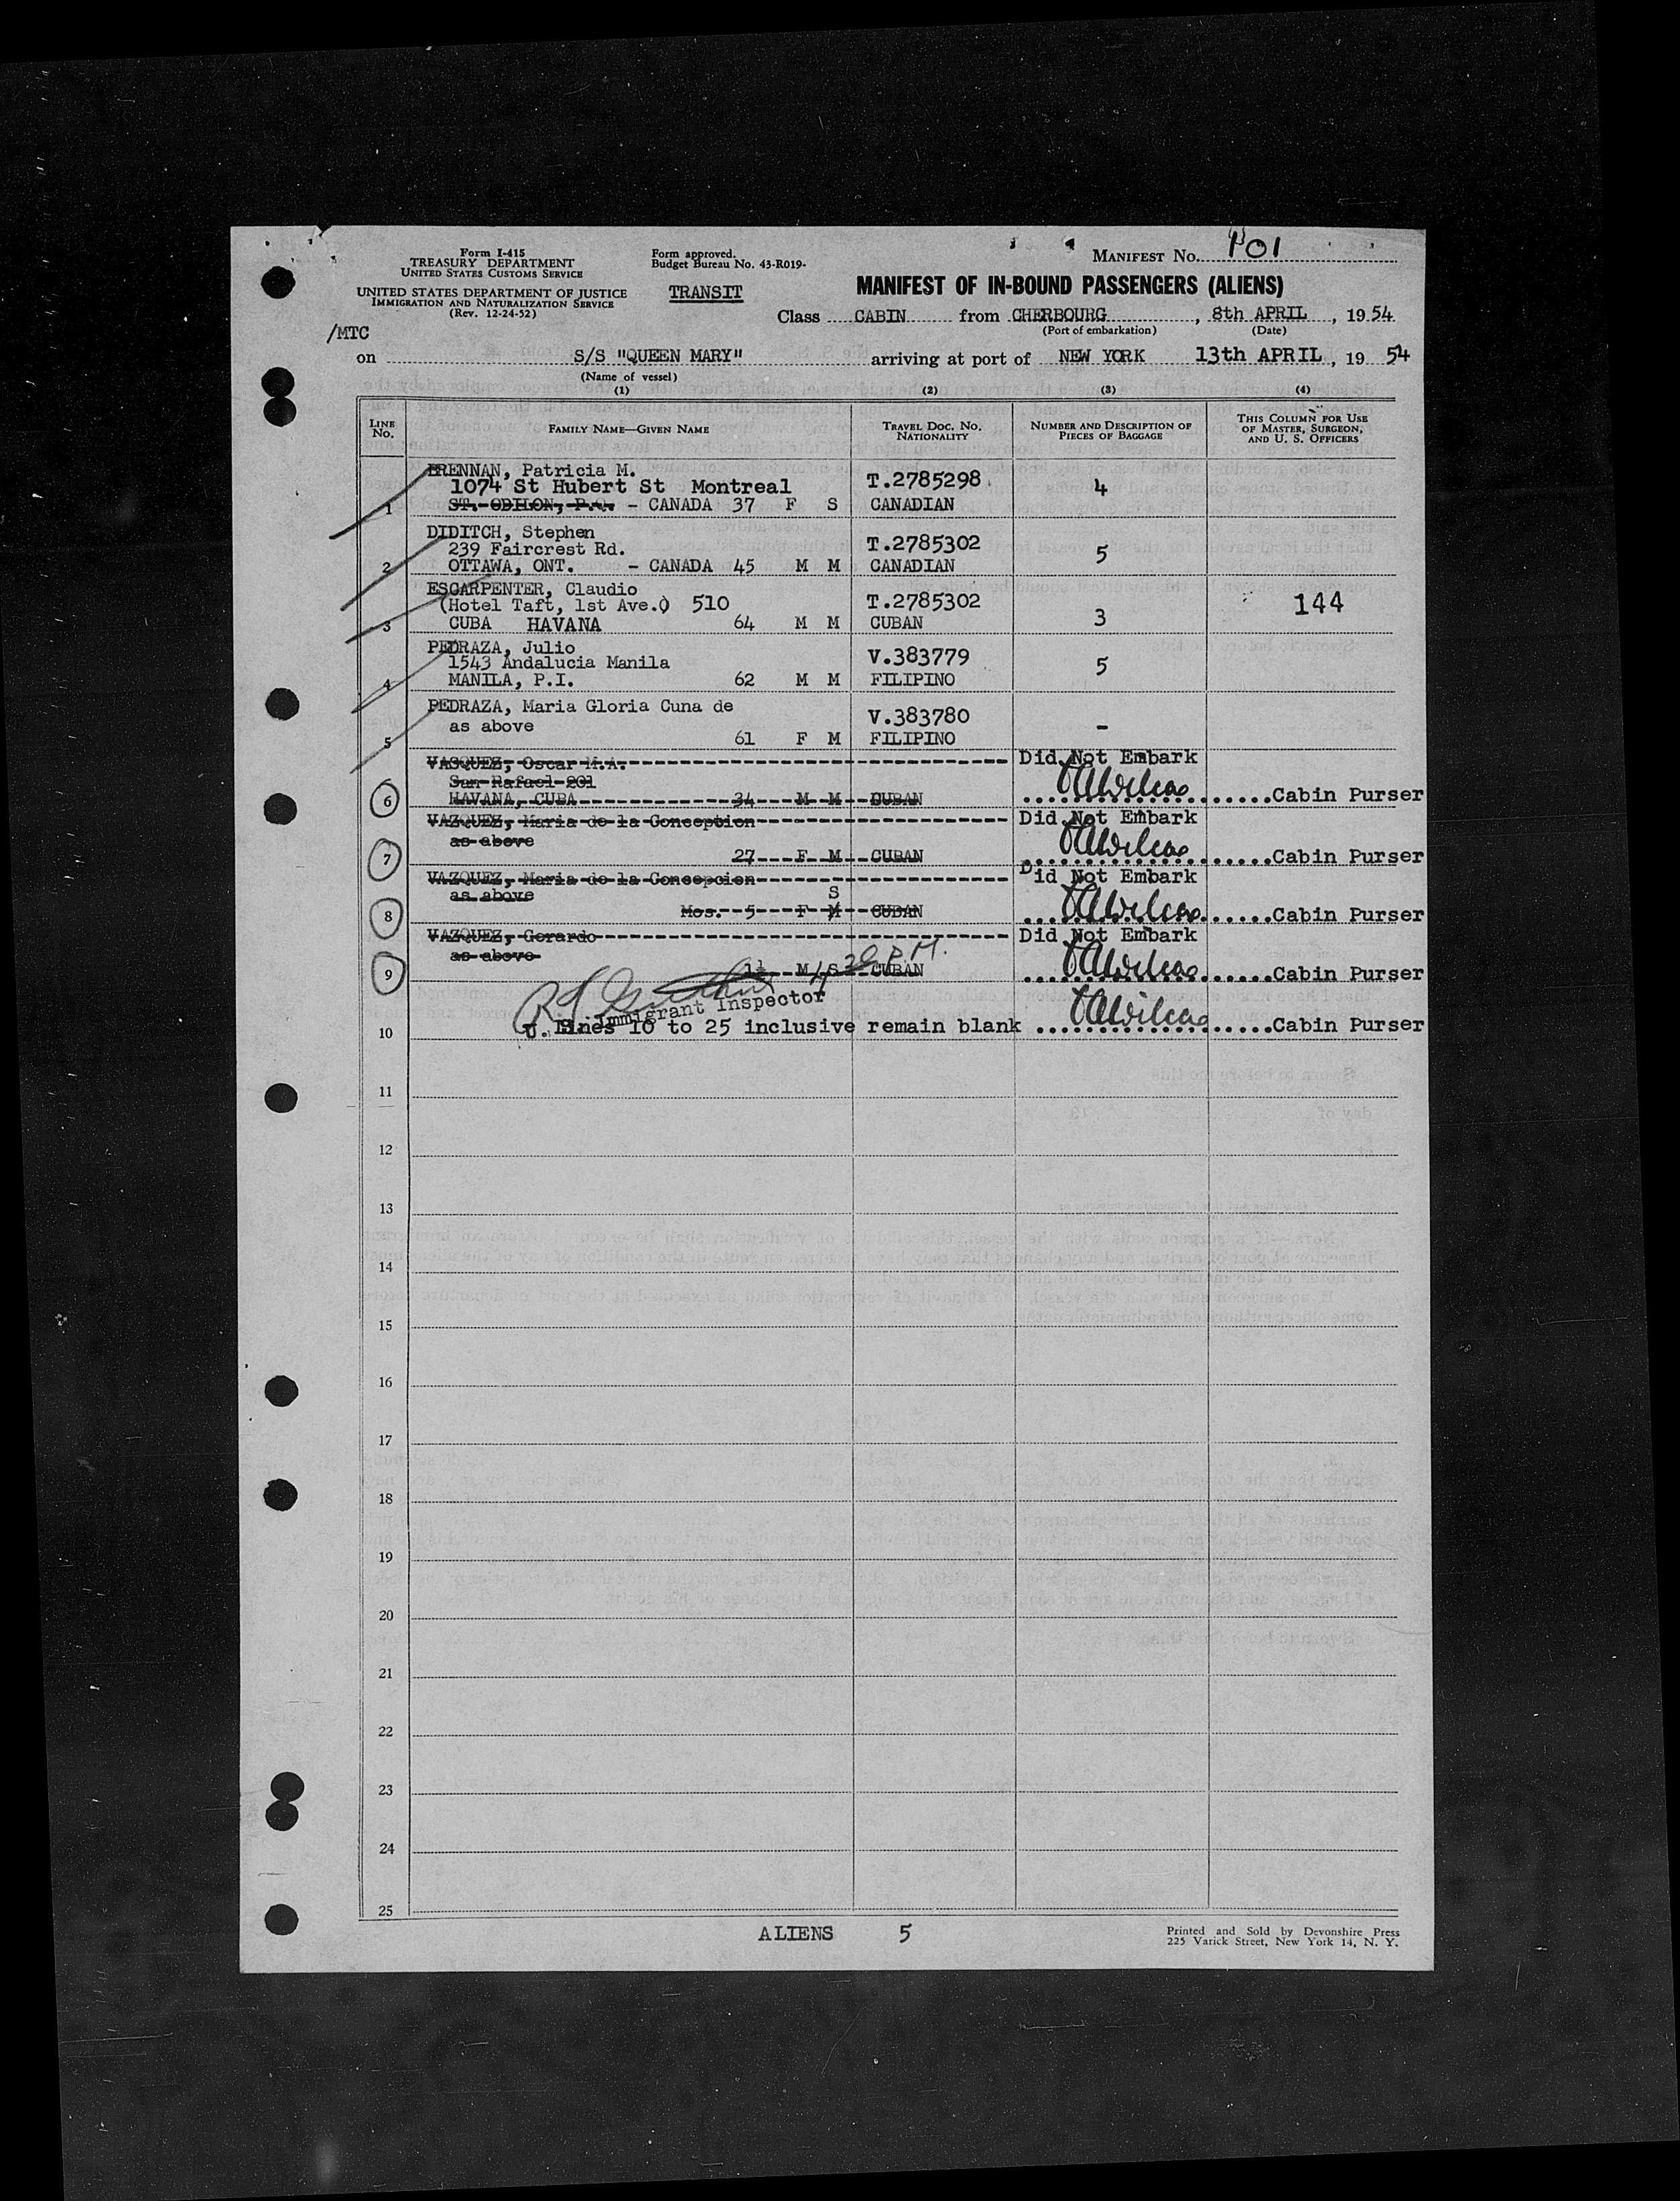 Form I-415
TREASURY DEPARTMENT
UNITED STATES CUSTOMS SERVICE
UNITED STATES DEPARTMENT OF JUSTICE
IMMIGRATION AND NATURALIZATION SERVICE
(Rev. 12-24-52)
Form approved.
Budget Bureau No. 43-R019-
TRANSIT
MANIFEST No. 101
MANIFEST OF IN-BOUND PASSENGERS (ALIENS)
Class CABIN from CHERBOURG, 8th APRIL, 1954
(Port of embarkation) (Date)
/MTC
on S/S "QUEEN MARY" arriving at port of NEW YORK 13th APRIL, 19 54
(Name of vessel)
(1) (2) (3) (4)
LINE No. FAMILY NAME—GIVEN NAME TRAVEL DOC. NO. NATIONALITY NUMBER AND DESCRIPTION OF PIECES OF BAGGAGE THIS COLUMN FOR USE OF MASTER, SURGEON, AND U. S. OFFICERS
BRENNAN, Patricia M.
1074 St Hubert St Montreal T.2785298 4
1 ST. ODILON, P.Q. - CANADA 37 F S CANADIAN
DIDITCH, Stephen
239 Faircrest Rd. T.2785302 5
2 OTTAWA, ONT. - CANADA 45 M M CANADIAN
ESCARPENTER, Claudio
(Hotel Taft, 1st Ave.) 510 T.2785302 144
3 CUBA HAVANA 64 M M CUBAN 3
PEDRAZA, Julio
1543 Andalucia Manila V.383779 5
4 MANILA, P.I. 62 M M FILIPINO
PEDRAZA, Maria Gloria Cuna de
as above V.383780 -
5 61 F M FILIPINO
VASQUEZ, Oscar M.A. Did Not Embark
San Rafael 201
6 HAVANA, CUBA 34 M M CUBAN Cabin Purser
VAZQUEZ, Maria de la Conception Did Not Embark
as above
7 27 F M CUBAN Cabin Purser
VAZQUEZ, Maria de la Concepcion Did Not Embark
as above S
8 Mos. 5 F M CUBAN Cabin Purser
VAZQUEZ, Gerardo Did Not Embark
as above
9 1½ M S CUBAN Cabin Purser
U. S. Immigrant Inspector
10 Lines 10 to 25 inclusive remain blank Cabin Purser
11
12
13
14
15
16
17
18
19
20
21
22
23
24
25
ALIENS 5
Printed and Sold by Devonshire Press
225 Varick Street, New York 14, N. Y.